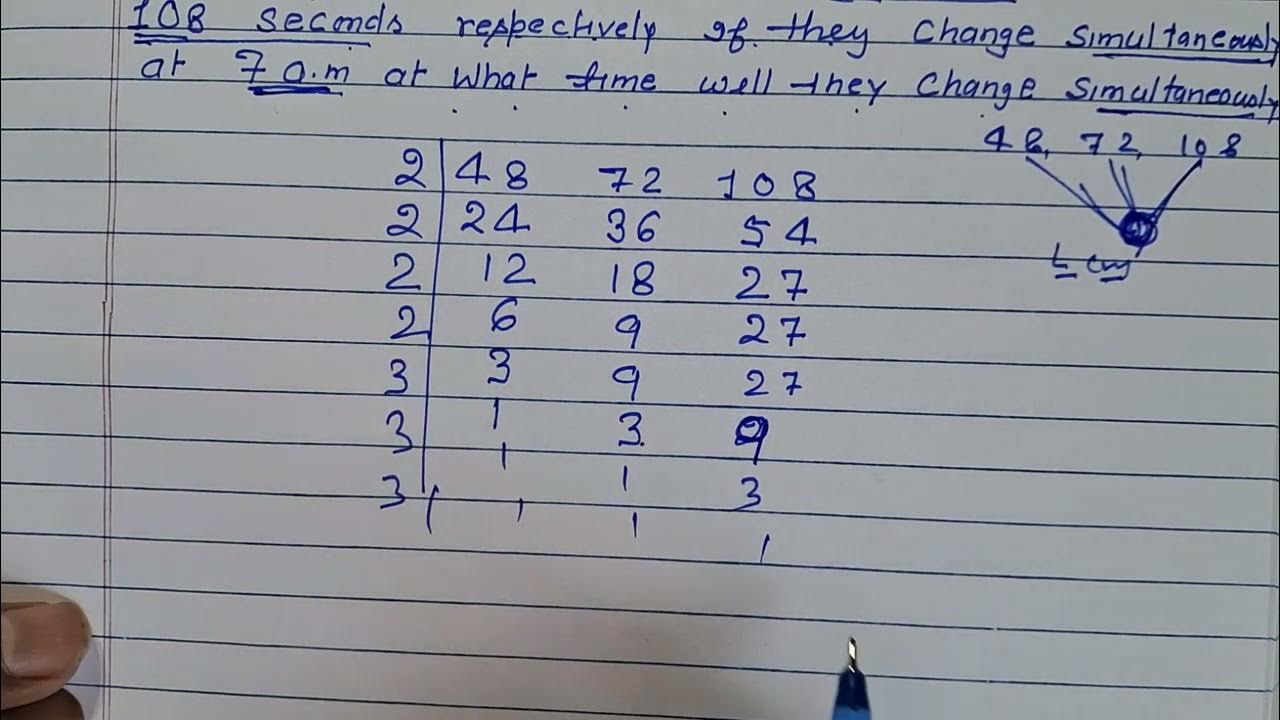 108 seconds respectively if they Change Simultaneously
at 7 a.m at what time well they Change Simultaneously
48, 72, 108
2 48 72 108
2 24 36 54
2 12 18 27
2 6 9 27
3 3 9 27
3 1 3 9
3 1 1 3
1 1 1